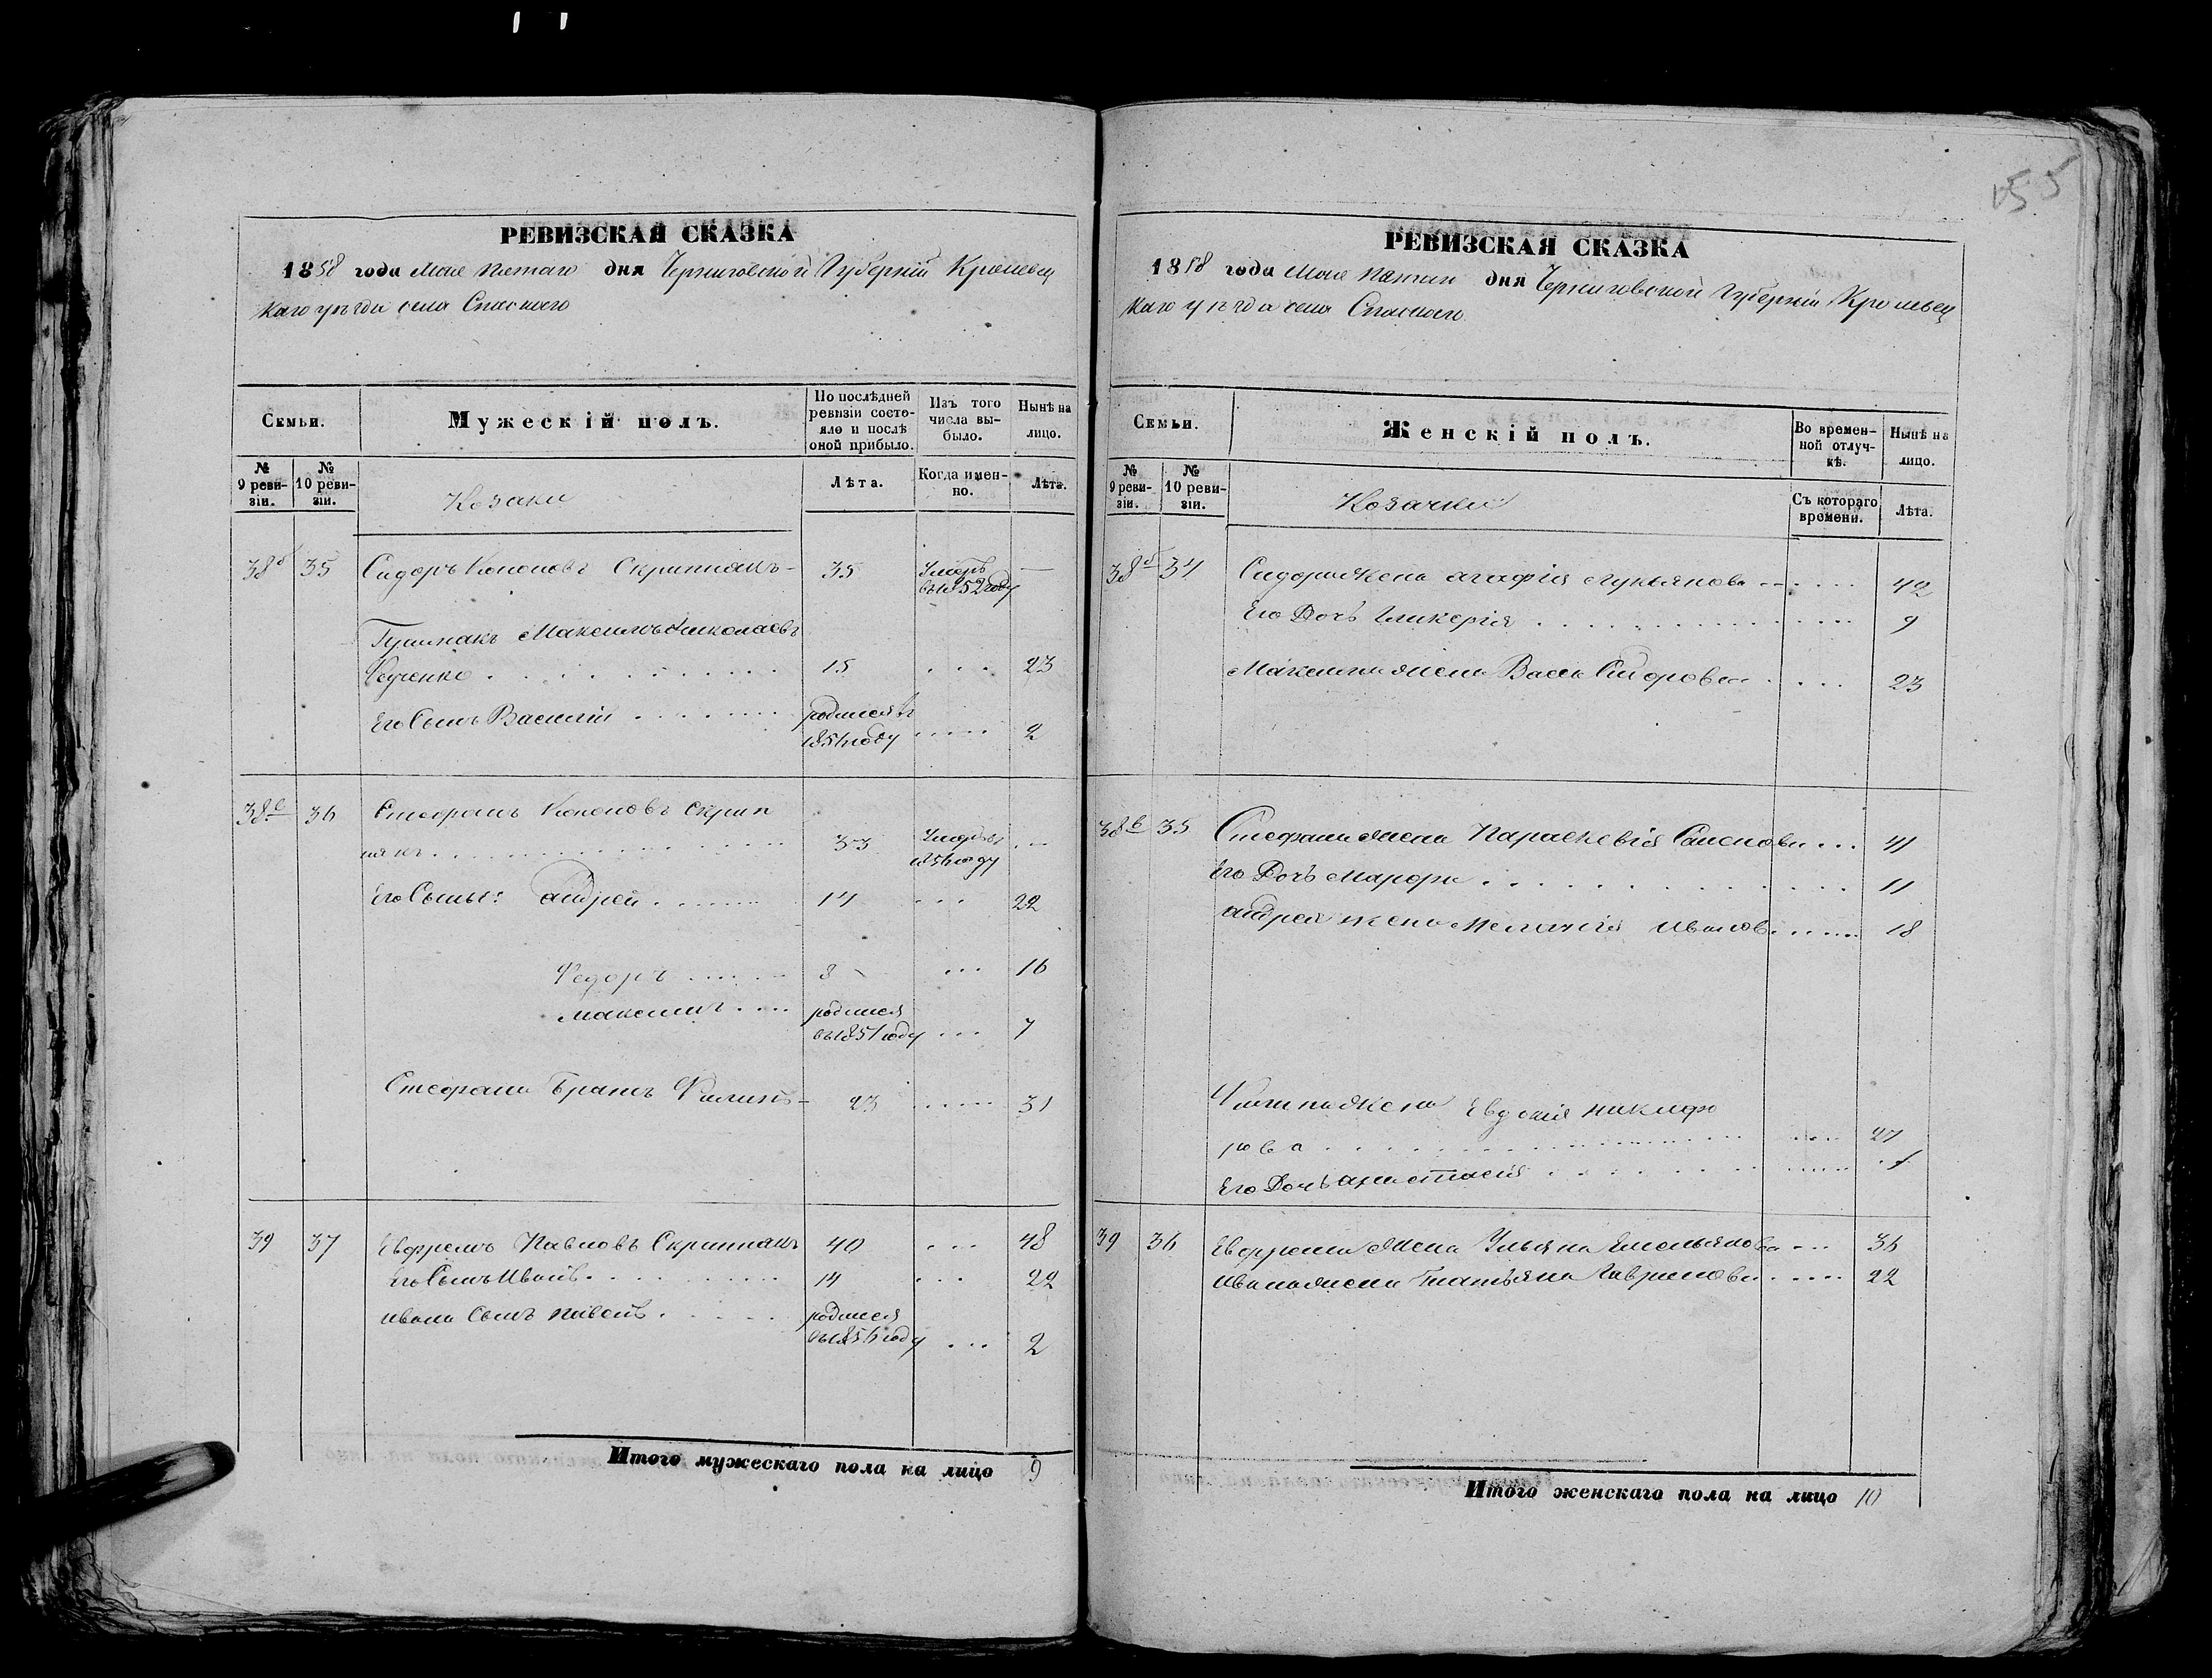 РЕВИЗСКАЯ СКАЗКА
1858 года Мая Пятаго дня Черниговской Губерніи Кролевец
каго уѣзда села Спаскаго
Семьи.
Мужескій полъ.
По послѣдней ревизіи состояло и послѣ оной прибыло.
Изъ того числа выбыло.
Нынѣ на лицо.
№ 9 ревизіи.
№ 10 ревизіи.
Козаки
Лѣта.
Когда именно.
Лѣта.
38б 35 Сидоръ Кононовъ Скрипнякъ 35 Умеръ —
въ 1852 году
Максимъ Николаевъ
Федченко 15 23
Его Сынъ Василій родился въ
2
38в 36 Стефанъ Кононовъ Скрип
някъ 33 Умеръ въ
году
Его Сыны: Андрей 14 22
Федоръ 8 16
Максимъ родился
въ 1851 году 7
Стефана Братъ Филипъ 23 31
39 37 Евфремъ Павловъ Скрипнякъ 40 48
Его Сынъ Иванъ 14 22
Ивана Сынъ Павелъ родился
въ 1856 году 2
Итого мужескаго пола на лицо 9
55
РЕВИЗСКАЯ СКАЗКА
1858 года Мая Пятаго дня Черниговской Губерніи Кролевец
каго уѣзда села Спаскаго
Семьи.
Женскій полъ.
Во временной отлучкѣ.
Нынѣ на лицо.
№ 9 ревизіи.
№ 10 ревизіи.
Козачки
Съ котораго времени.
Лѣта.
38б 34 Сидора жена Агафія Лукьянова 42
Его Дочь Гликерія 9
Максима жена Васса Сидорова 23
38в 35 Стефана жена Параскевія 41
Его Дочь Марфа 11
Андрея жена Меланія Иванова 18
Филипа жена Евдокія Никифо
рова 27
Его Дочь Анастасія 1
39 36 Евфрема жена Ульяна Емельянова 36
Ивана жена Татьяна Гаврилова 22
Итого женскаго пола на лицо 10